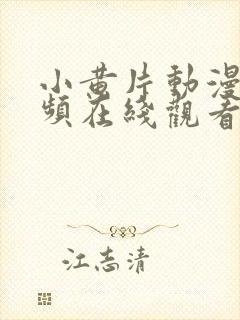 小黄片動漫
頻在綫觀看
江志清